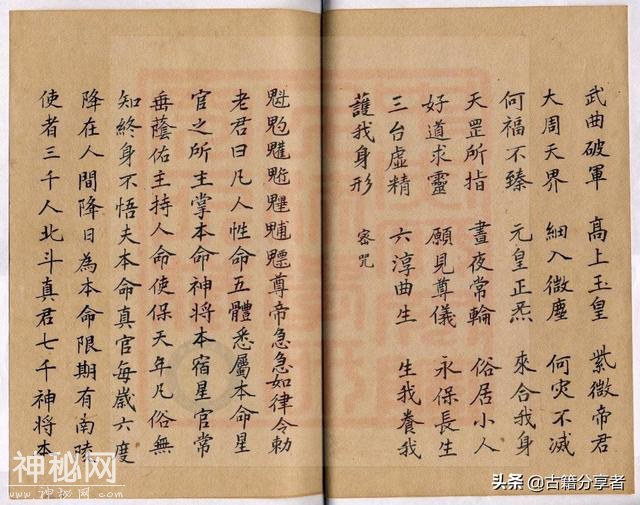 武曲破軍 髙上玉皇 紫微帝君
大周天界 細入微塵 何灾不滅
何福不臻 元皇正炁 來合我身
天罡所指 晝夜常輪 俗居小人
好道求靈 願見尊儀 永保長生
三台虛精 六淳曲生 生我養我
護我身形 密咒
魁 尊帝急急如律令勅
老君曰凡人性命五體悉屬本命星
官之所主掌本命神將本宿星官常
垂蔭佑主持人命使保天年凡俗無
知終身不悟夫本命真官每歲六度
降在人間降日為本命限期有南陵
使者三千人北斗真君七千神將本
神秘网
www.神秘网.com
头条 @古籍分享者